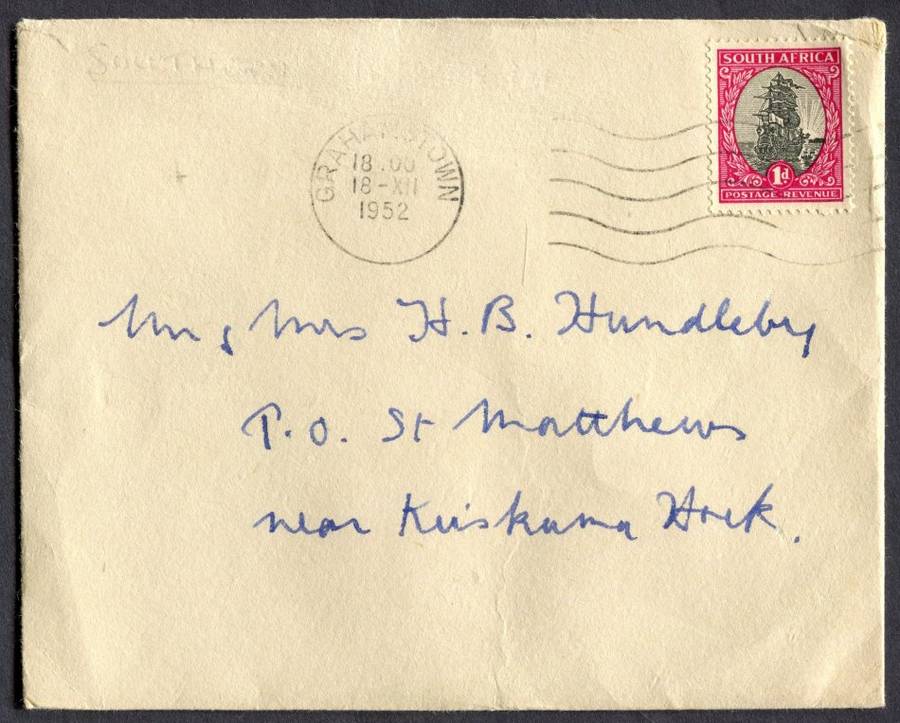 SOUTH AFRICA
1d
POSTAGE REVENUE
GRAHAMSTOWN
18.00
18-XII
1952
Mr & Mrs H. B. Hundleby
P.O. St Matthews
near Keiskama Hoek.